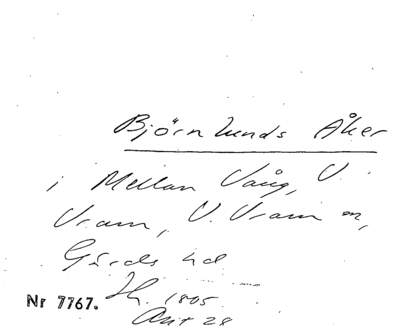 Björnlunds Åker
i Mellan Vång, V.
Vram, V. Vram sn,
Gärds hd
Sh. 1805
Akt 28
Nr 7767.